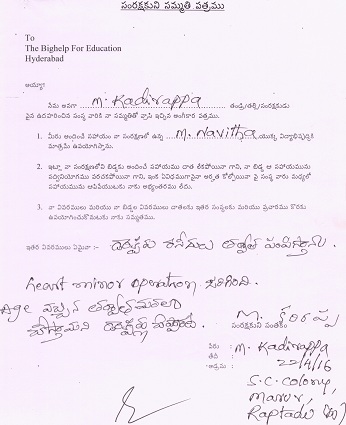 సంరక్షకుని సమ్మతి పత్రము
To
The Bighelp For Education
Hyderabad
అయ్యా!
నేను అనగా M. Kadirappa తండ్రి/తల్లి/సంరక్షకుడు
పైన ఉదహరించిన సంస్థ వారికి నా సమ్మతితో వ్రాసి ఇచ్చిన అంగీకార పత్రము.
1. మీరు అందించే సహాయం నా సంరక్షణలో ఉన్న M. Navitha యొక్క విద్యాభివృద్ధికి
మాత్రమే ఉపయోగిస్తాను.
2. ఇట్లా నా సంరక్షణలోని బిడ్డకు అందించే సహాయము చాత లేకపోయినా గాని, నా బిడ్డ ఆ సహాయమును
సద్వినియోగము పరచకపోయినా గాని, ఇంక ఏవిధముగానైనా అర్హత కోల్పోయినా పై సంస్థ వారు మధ్యలో
సహాయమును ఆపివేయుటకు నాకు అభ్యంతరము లేదు.
3. నా వివరములు మరియు నా బిడ్డల వివరములు దాతలకు ఇతర సంస్థలకు మరియు ప్రచారము కొరకు
ఉపయోగించుకొనుటకు నాకు సమ్మతము.
ఇతర వివరములు ఏమైనా :- రసీదులు తర్వాత పంపిస్తాను.
heart minor operation జరిగింది.
Age వచ్చిన తర్వాత
M. కదిరప్ప
సంరక్షకుని సంతకం
పేరు : M. Kadirappa
తేది : 22/4/16
అడ్రసు : S.C. Colony,
Marur,
Raptadu (M)